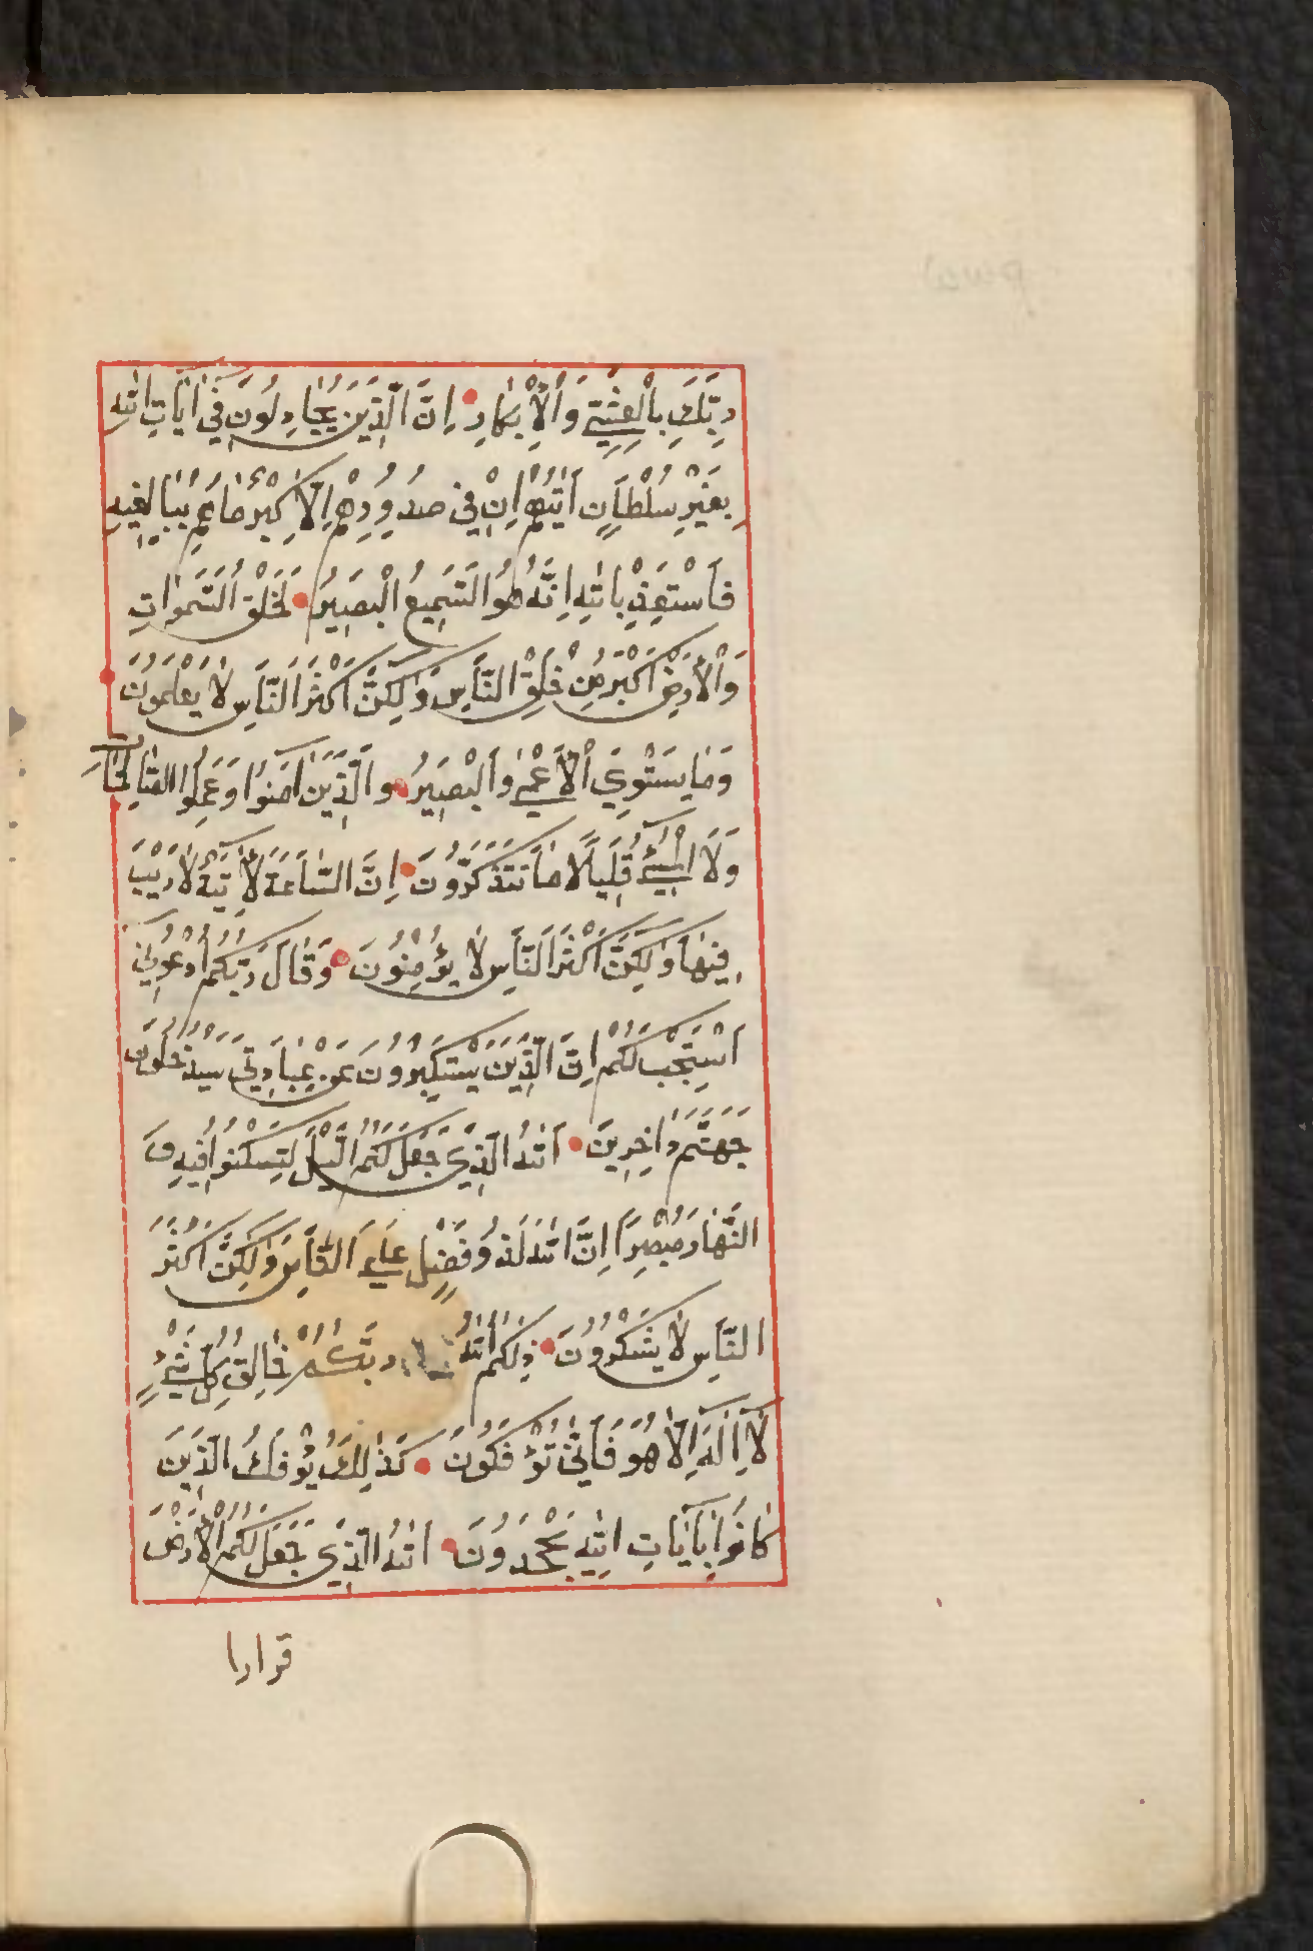 رَبِّكَ بِالْعَشِيِّ وَالْاِبْكَارِ اِنَّ الَّذِينَ يُجَادِلُونَ فِي اٰيَاتِ اللهِ
بِغَيْرِ سُلْطَانٍ اَتٰيهُمْ اِنْ فِي صُدُورِهِمْ اِلَّا كِبْرٌ مَا هُمْ بِبَالِغِيهِ
فَاسْتَعِذْ بِاللهِ اِنَّهُ هُوَ السَّمِيعُ الْبَصِيرُ لَخَلْقُ السَّمٰوَاتِ
وَالْاَرْضِ اَكْبَرُ مِنْ خَلْقِ النَّاسِ وَلٰكِنَّ اَكْثَرَ النَّاسِ لَا يَعْلَمُونَ
وَمَا يَسْتَوِي الْاَعْمٰى وَالْبَصِيرُ وَالَّذِينَ اٰمَنُوا وَعَمِلُوا الصَّالِحَاتِ
وَلَا الْمُسِيءُ قَلِيلًا مَا تَتَذَكَّرُونَ اِنَّ السَّاعَةَ لَاٰتِيَةٌ لَا رَيْبَ
فِيهَا وَلٰكِنَّ اَكْثَرَ النَّاسِ لَا يُؤْمِنُونَ وَقَالَ رَبُّكُمُ ادْعُونِي
اَسْتَجِبْ لَكُمْ اِنَّ الَّذِينَ يَسْتَكْبِرُونَ عَنْ عِبَادَتِي سَيَدْخُلُونَ
جَهَنَّمَ دَاخِرِينَ اَللهُ الَّذِي جَعَلَ لَكُمُ الَّيْلَ لِتَسْكُنُوا فِيهِ وَ
النَّهَارَ مُبْصِرًا اِنَّ اللهَ لَذُو فَضْلٍ عَلَى النَّاسِ وَلٰكِنَّ اَكْثَرَ
النَّاسِ لَا يَشْكُرُونَ ذٰلِكُمُ اللهُ رَبُّكُمْ خَالِقُ كُلِّ شَيْءٍ
لَا اِلٰهَ اِلَّا هُوَ فَاَنّٰى تُؤْفَكُونَ كَذٰلِكَ يُؤْفَكُ الَّذِينَ
كَانُوا بِاٰيَاتِ اللهِ يَجْحَدُونَ اَللهُ الَّذِي جَعَلَ لَكُمُ الْاَرْضَ
قرارا